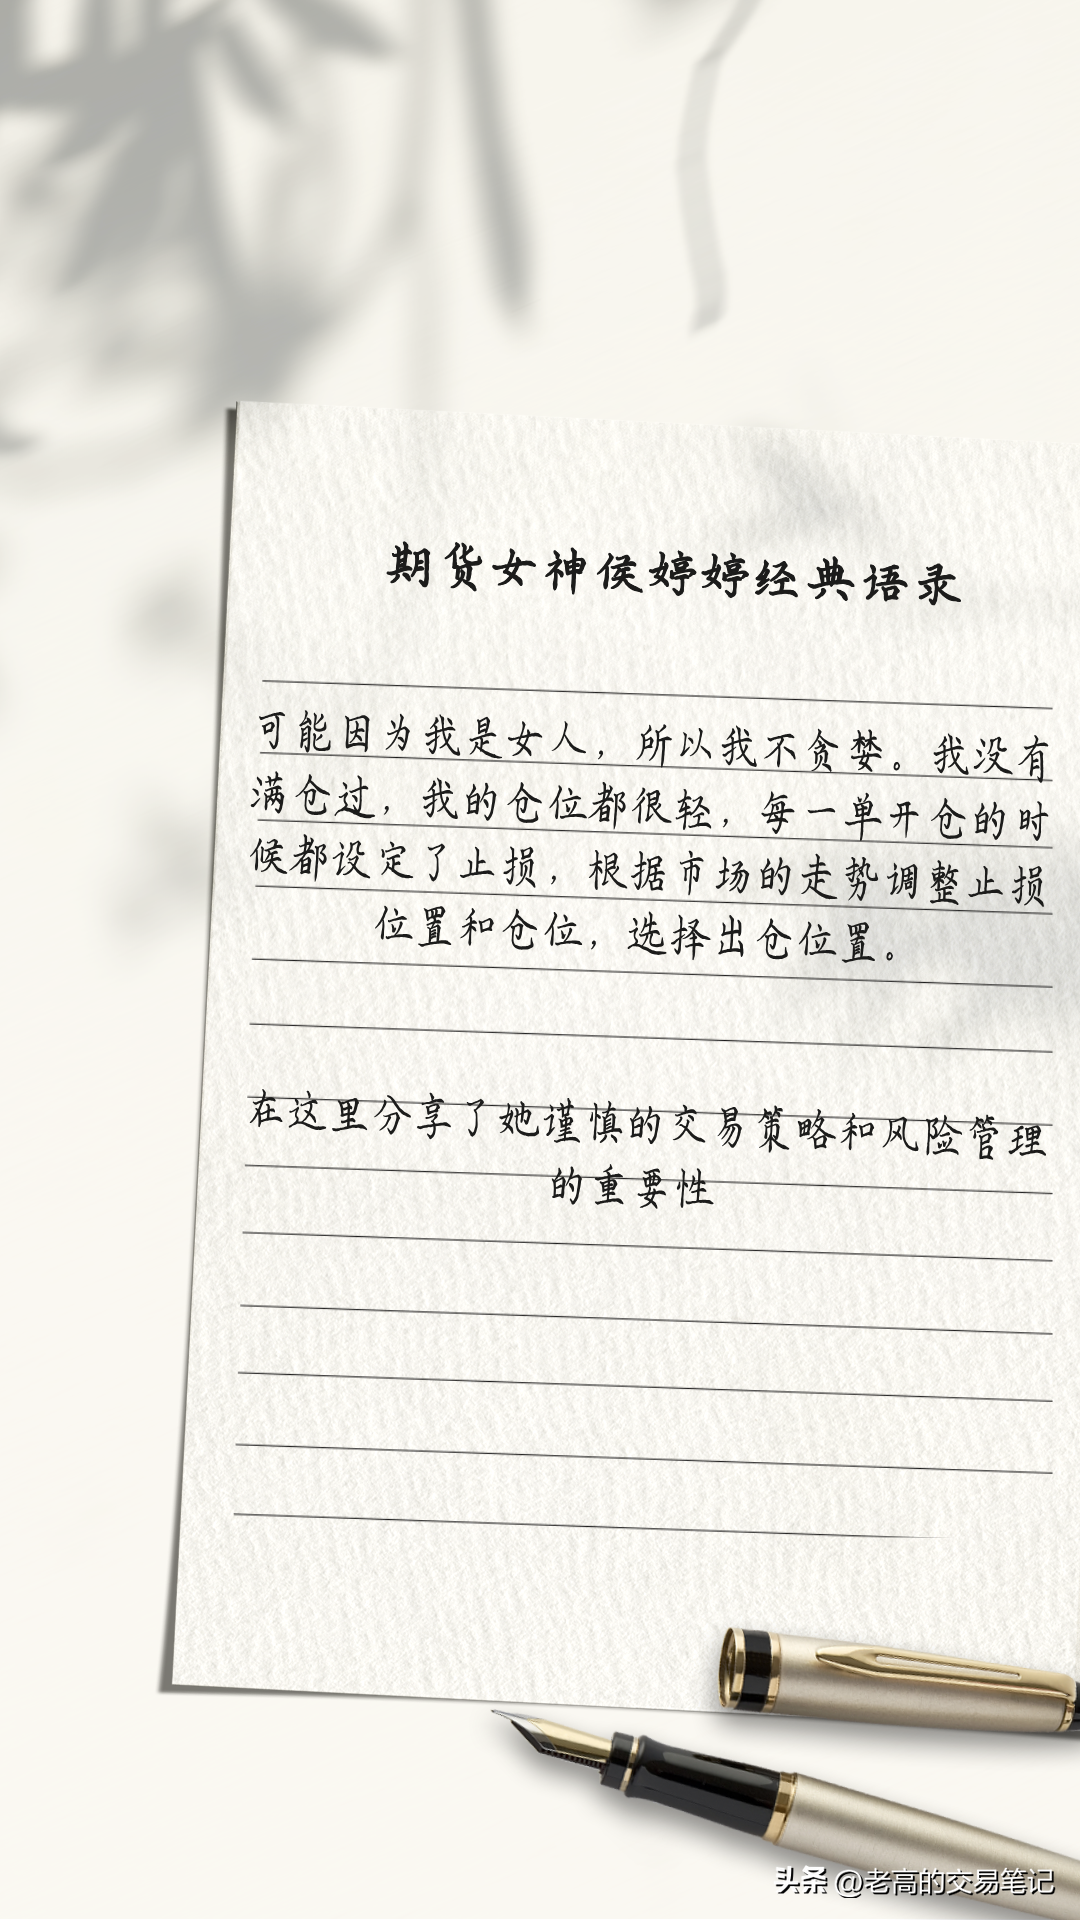 期货女神侯婷婷经典语录
可能因为我是女人，所以我不贪婪。我没有
满仓过，我的仓位都很轻，每一单开仓的时
候都设定了止损，根据市场的走势调整止损
位置和仓位，选择出仓位置。
在这里分享了她谨慎的交易策略和风险管理
的重要性
头条 @老高的交易笔记